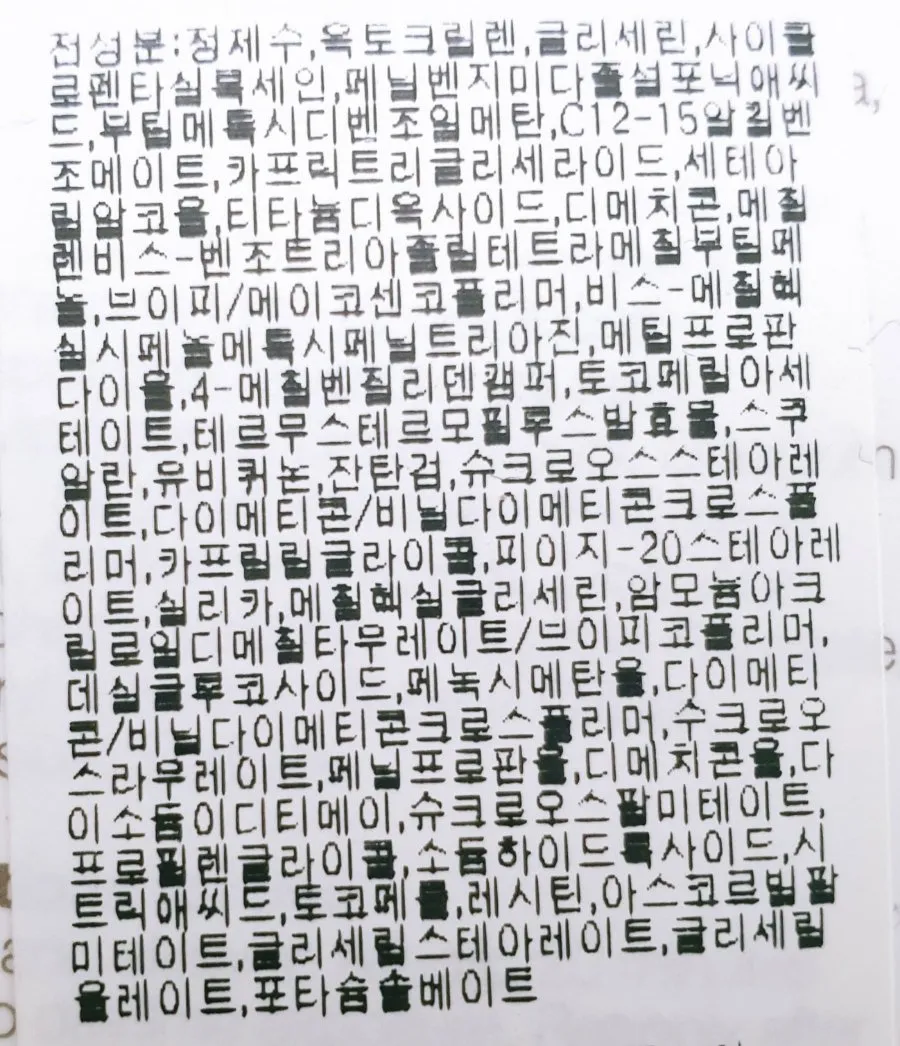 전성분:정제수,옥토크릴렌,글리세린,사이클
로펜타실록세인,페닐벤지미다졸설포닉애씨
드,부틸메톡시디벤조일메탄,C12-15알킬벤
조메이트,카프릭트리글리세라이드,세테아
릴알코올,티타늄디옥사이드,디메치콘,메칠
렌비스-벤조트리아졸릴테트라메칠부틸페
놀,브이피/에이코센코폴리머,비스-에칠헥
실시페놀메톡시페닐트리아진,메틸프로판
다이올,4-메칠벤질리덴캠퍼,토코페릴아세
테이트,테르무스테르모필루스발효물,스쿠
알란,유비퀴논,잔탄검,슈크로오스스테아레
이트,다이메티콘/비닐다이메티콘크로스폴
리머,카프릴릴글라이콜,피이지-20스테아레
이트,실리카,에칠헥실글리세린,암모늄아크
릴로일디메칠타우레이트/브이피코폴리머,
데실글루코사이드,페녹시에탄올,다이메티
콘/비닐다이메티콘크로스폴리머,수크로오
스라우레이트,페닐프로판올,디메치콘올,다
이소듐이디티에이,슈크로오스팔미테이트,
프로필렌글라이콜,소듐하이드록사이드,시
트릭애씨드,토코페롤,레시틴,아스코르빌팔
미테이트,글리세릴스테아레이트,글리세릴
올레이트,포타슘솔베이트